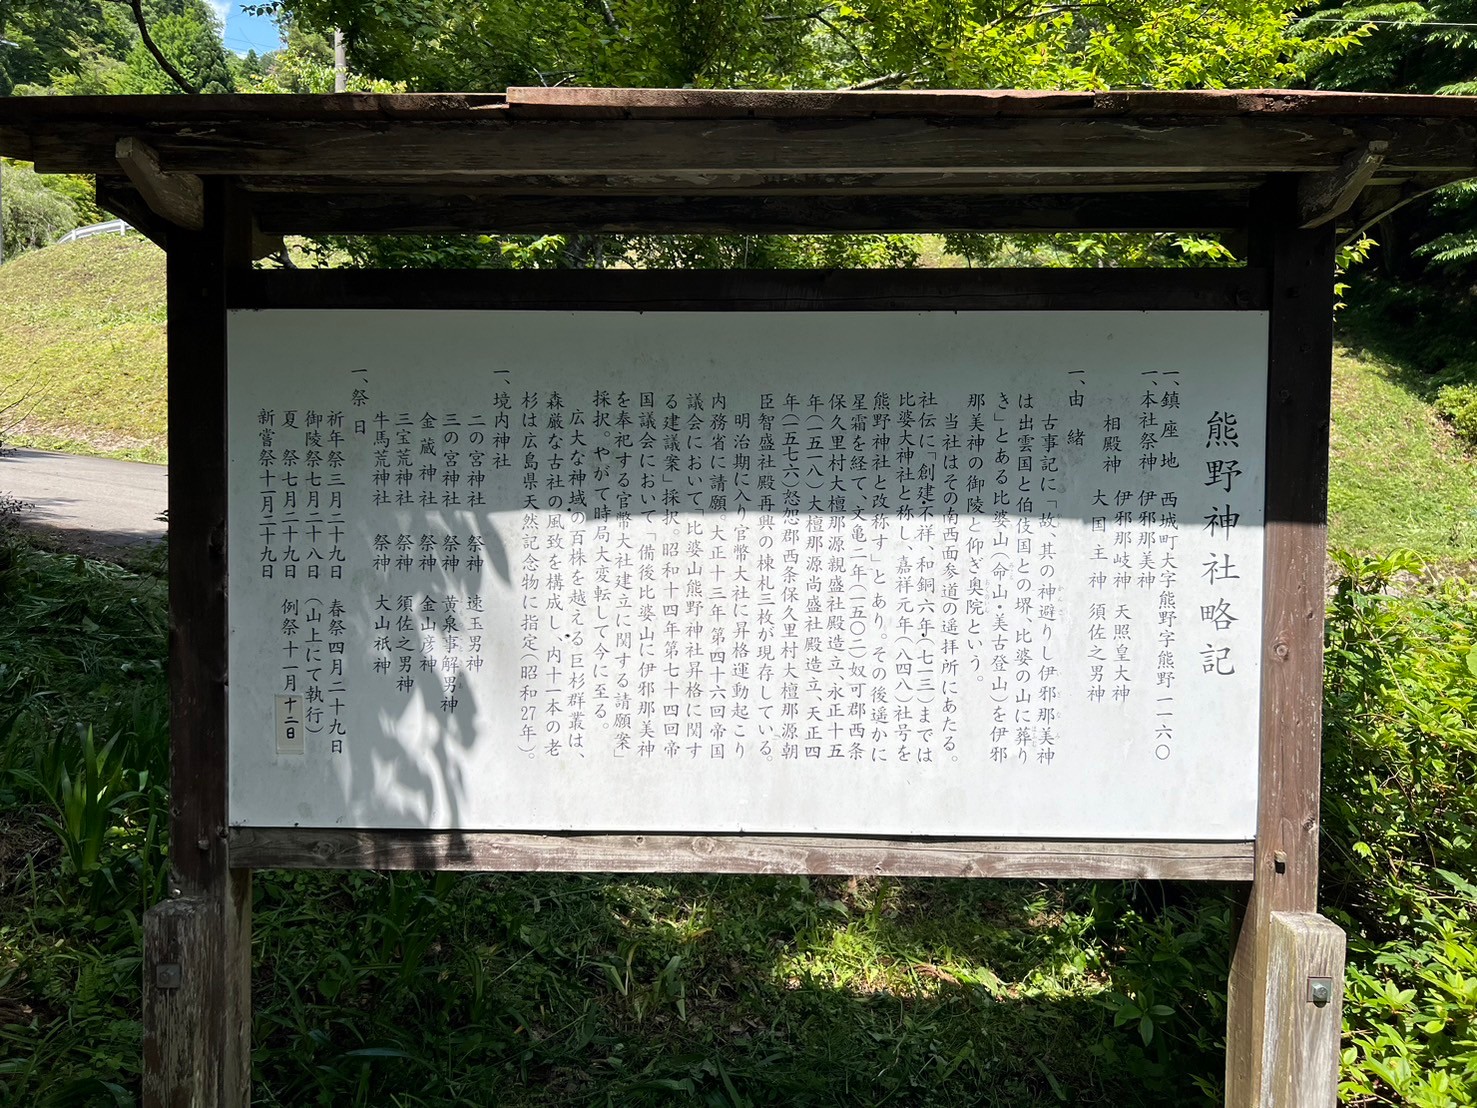 熊野神社略記
一、鎮座地 西城町大字熊野字熊野一一六〇
一、本社祭神 伊邪那美神
相殿神 伊邪那岐神 天照皇大神
大国主神 須佐之男神
一、由緒
古事記に「故、其の神避りし伊邪那美神
は出雲国と伯伎国との堺、比婆の山に葬り
き」とある比婆山(命山・美古登山)を伊邪
那美神の御陵と仰ぎ奥院という。
当社はその南西面参道の遥拝所にあたる。
社伝に「創建不祥、和銅六年(七一三)までは
比婆大神社と称し、嘉祥元年(八四八)社号を
熊野神社と改称す」とあり。その後遥かに
星霜を経て、文亀二年(一五〇二)奴可郡西条
保久里村大檀那源親盛社殿造立、永正十五
年(一五一八)大檀那源尚盛社殿造立、天正四
年(一五七六)怒怨郡西条保久里村大檀那源朝
臣智盛社殿再興の棟札三枚が現存している。
明治期に入り官幣大社に昇格運動起こり
内務省に請願。大正十三年第四十六回帝国
議会において「比婆山熊野神社昇格に関す
る建議案」採択。昭和十四年第七十四回帝
国議会において「備後比婆山に伊邪那美神
を奉祀する官幣大社建立に関する請願案」
採択。やがて時局大変転して今に至る。
広大な神域の百株を越える巨杉群叢は、
森厳な古社の風致を構成し、内十一本の老
杉は広島県天然記念物に指定(昭和27年)。
一、境内神社
二の宮神社 祭神 速玉男神
三の宮神社 祭神 黄泉事解男神
金蔵神社 祭神 金山彦神
三宝荒神社 祭神 須佐之男神
牛馬荒神社 祭神 大山祇神
一、祭日
祈年祭三月二十九日 春祭四月二十九日
御陵祭七月二十八日 (山上にて執行)
夏祭七月二十九日 例祭十一月十二日
新嘗祭十一月二十九日